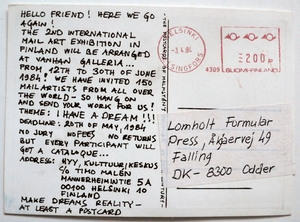 HELLO FRIEND! HERE WE GO
AGAIN!
THE 2ND INTERNATIONAL
MAIL ART EXHIBITION IN
FINLAND WILL BE ARRANGED
AT VANHAN GALLERIA...
FROM 12TH TO 30TH OF JUNE
1984! WE HAVE INVITED 150
MAILARTISTS FROM ALL OVER
THE WORLD - SO HANG ON
AND SEND YOUR WORK FOR US!
THEME: I HAVE A DREAM!!!
DEADLINE: 20TH OF MAY, 1984
NO JURY NO FEES NO RETURNS
BUT EVERY PARTICIPANT WILL
GOT A CATALOQUE...
ADDRESS: HYY, KULTTUURIKESKUS
C/O TIMO MALÉN
MANNERHEIMINTIE 5A
00100 HELSINKI 10
FINLAND
MAKE DREAMS REALITY-
AT LEAST A POSTCARD
HELSINKI
-3.4.84
HELSINGFORS
200
4309 SUOMI-FINLAND
Lomholt Formular
Press, Åkjærvej 49
Falling
DK-8300 Odder